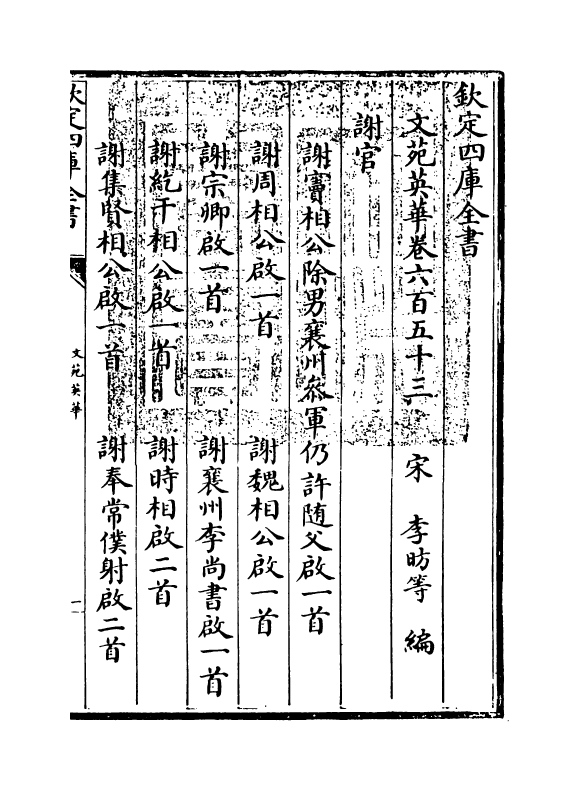 欽定四庫全書
文苑英華卷六百五十三
宋 李昉等 編
謝官
謝竇相公除男襄州叅軍仍許随父啟一首
謝周相公啟一首 謝魏相公啟一首
謝宗卿啟一首 謝襄州李尚書啟一首
謝紇干相公啟一首 謝時相啟二首
謝集賢相公啟一首 謝奉常僕射啟二首
欽定四庫全書
文苑英華
一